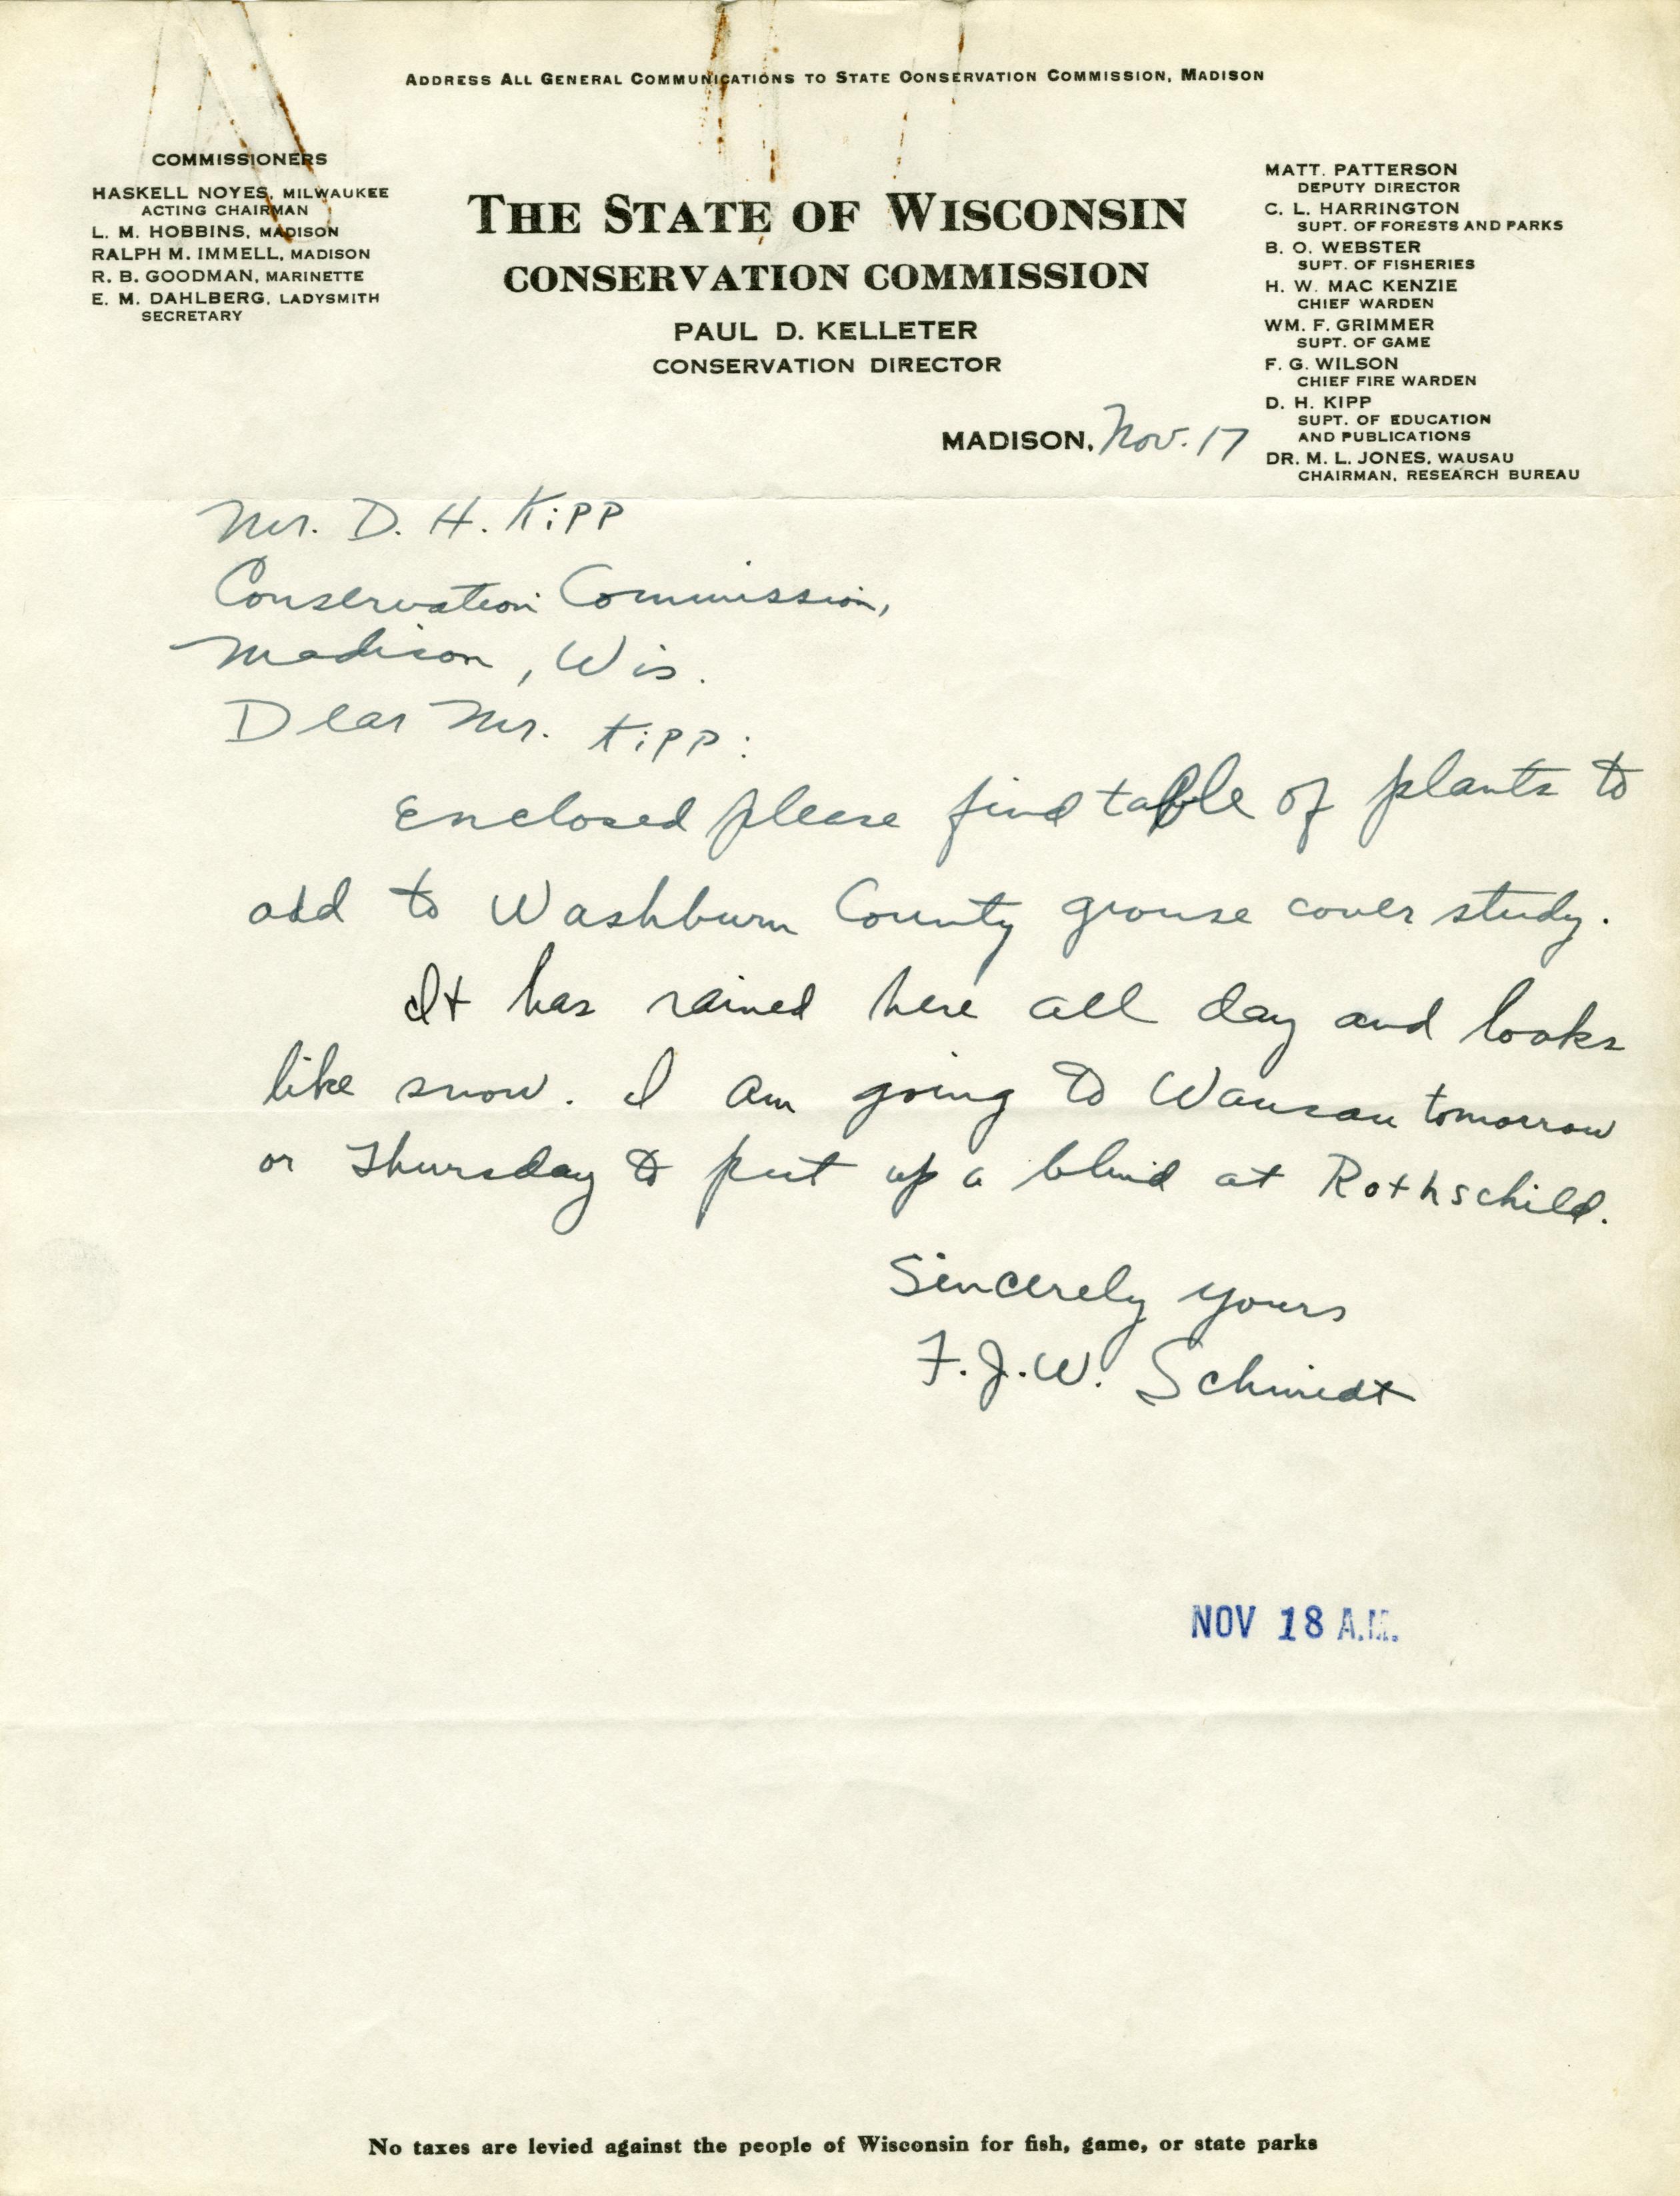 ADDRESS ALL GENERAL COMMUNICATIONS TO STATE CONSERVATION COMMISSION, MADISON
COMMISSIONERS
HASKELL NOYES, MILWAUKEE
ACTING CHAIRMAN
L. M. HOBBINS, MADISON
RALPH M. IMMELL, MADISON
R. B. GOODMAN, MARINETTE
E. M. DAHLBERG, LADYSMITH
SECRETARY
THE STATE OF WISCONSIN
CONSERVATION COMMISSION
PAUL D. KELLETER
CONSERVATION DIRECTOR
MATT. PATTERSON
DEPUTY DIRECTOR
C. L. HARRINGTON
SUPT. OF FORESTS AND PARKS
B. O. WEBSTER
SUPT. OF FISHERIES
H. W. MAC KENZIE
CHIEF WARDEN
WM. F. GRIMMER
SUPT. OF GAME
F. G. WILSON
CHIEF FIRE WARDEN
D. H. KIPP
SUPT. OF EDUCATION
AND PUBLICATIONS
DR. M. L. JONES, WAUSAU
CHAIRMAN, RESEARCH BUREAU
MADISON, Nov. 17
Mr. D. H. Kipp
Conservation Commission,
Madison, Wis.
Dear Mr. Kipp:
Enclosed please find table of plants to
add to Washburn County grouse cover study.
It has rained here all day and looks
like snow. I am going to Wausau tomorrow
or Thursday to put up a blind at Rothschild.
Sincerely yours
F.J.W. Schmidt
NOV 18 A.M.
No taxes are levied against the people of Wisconsin for fish, game, or state parks